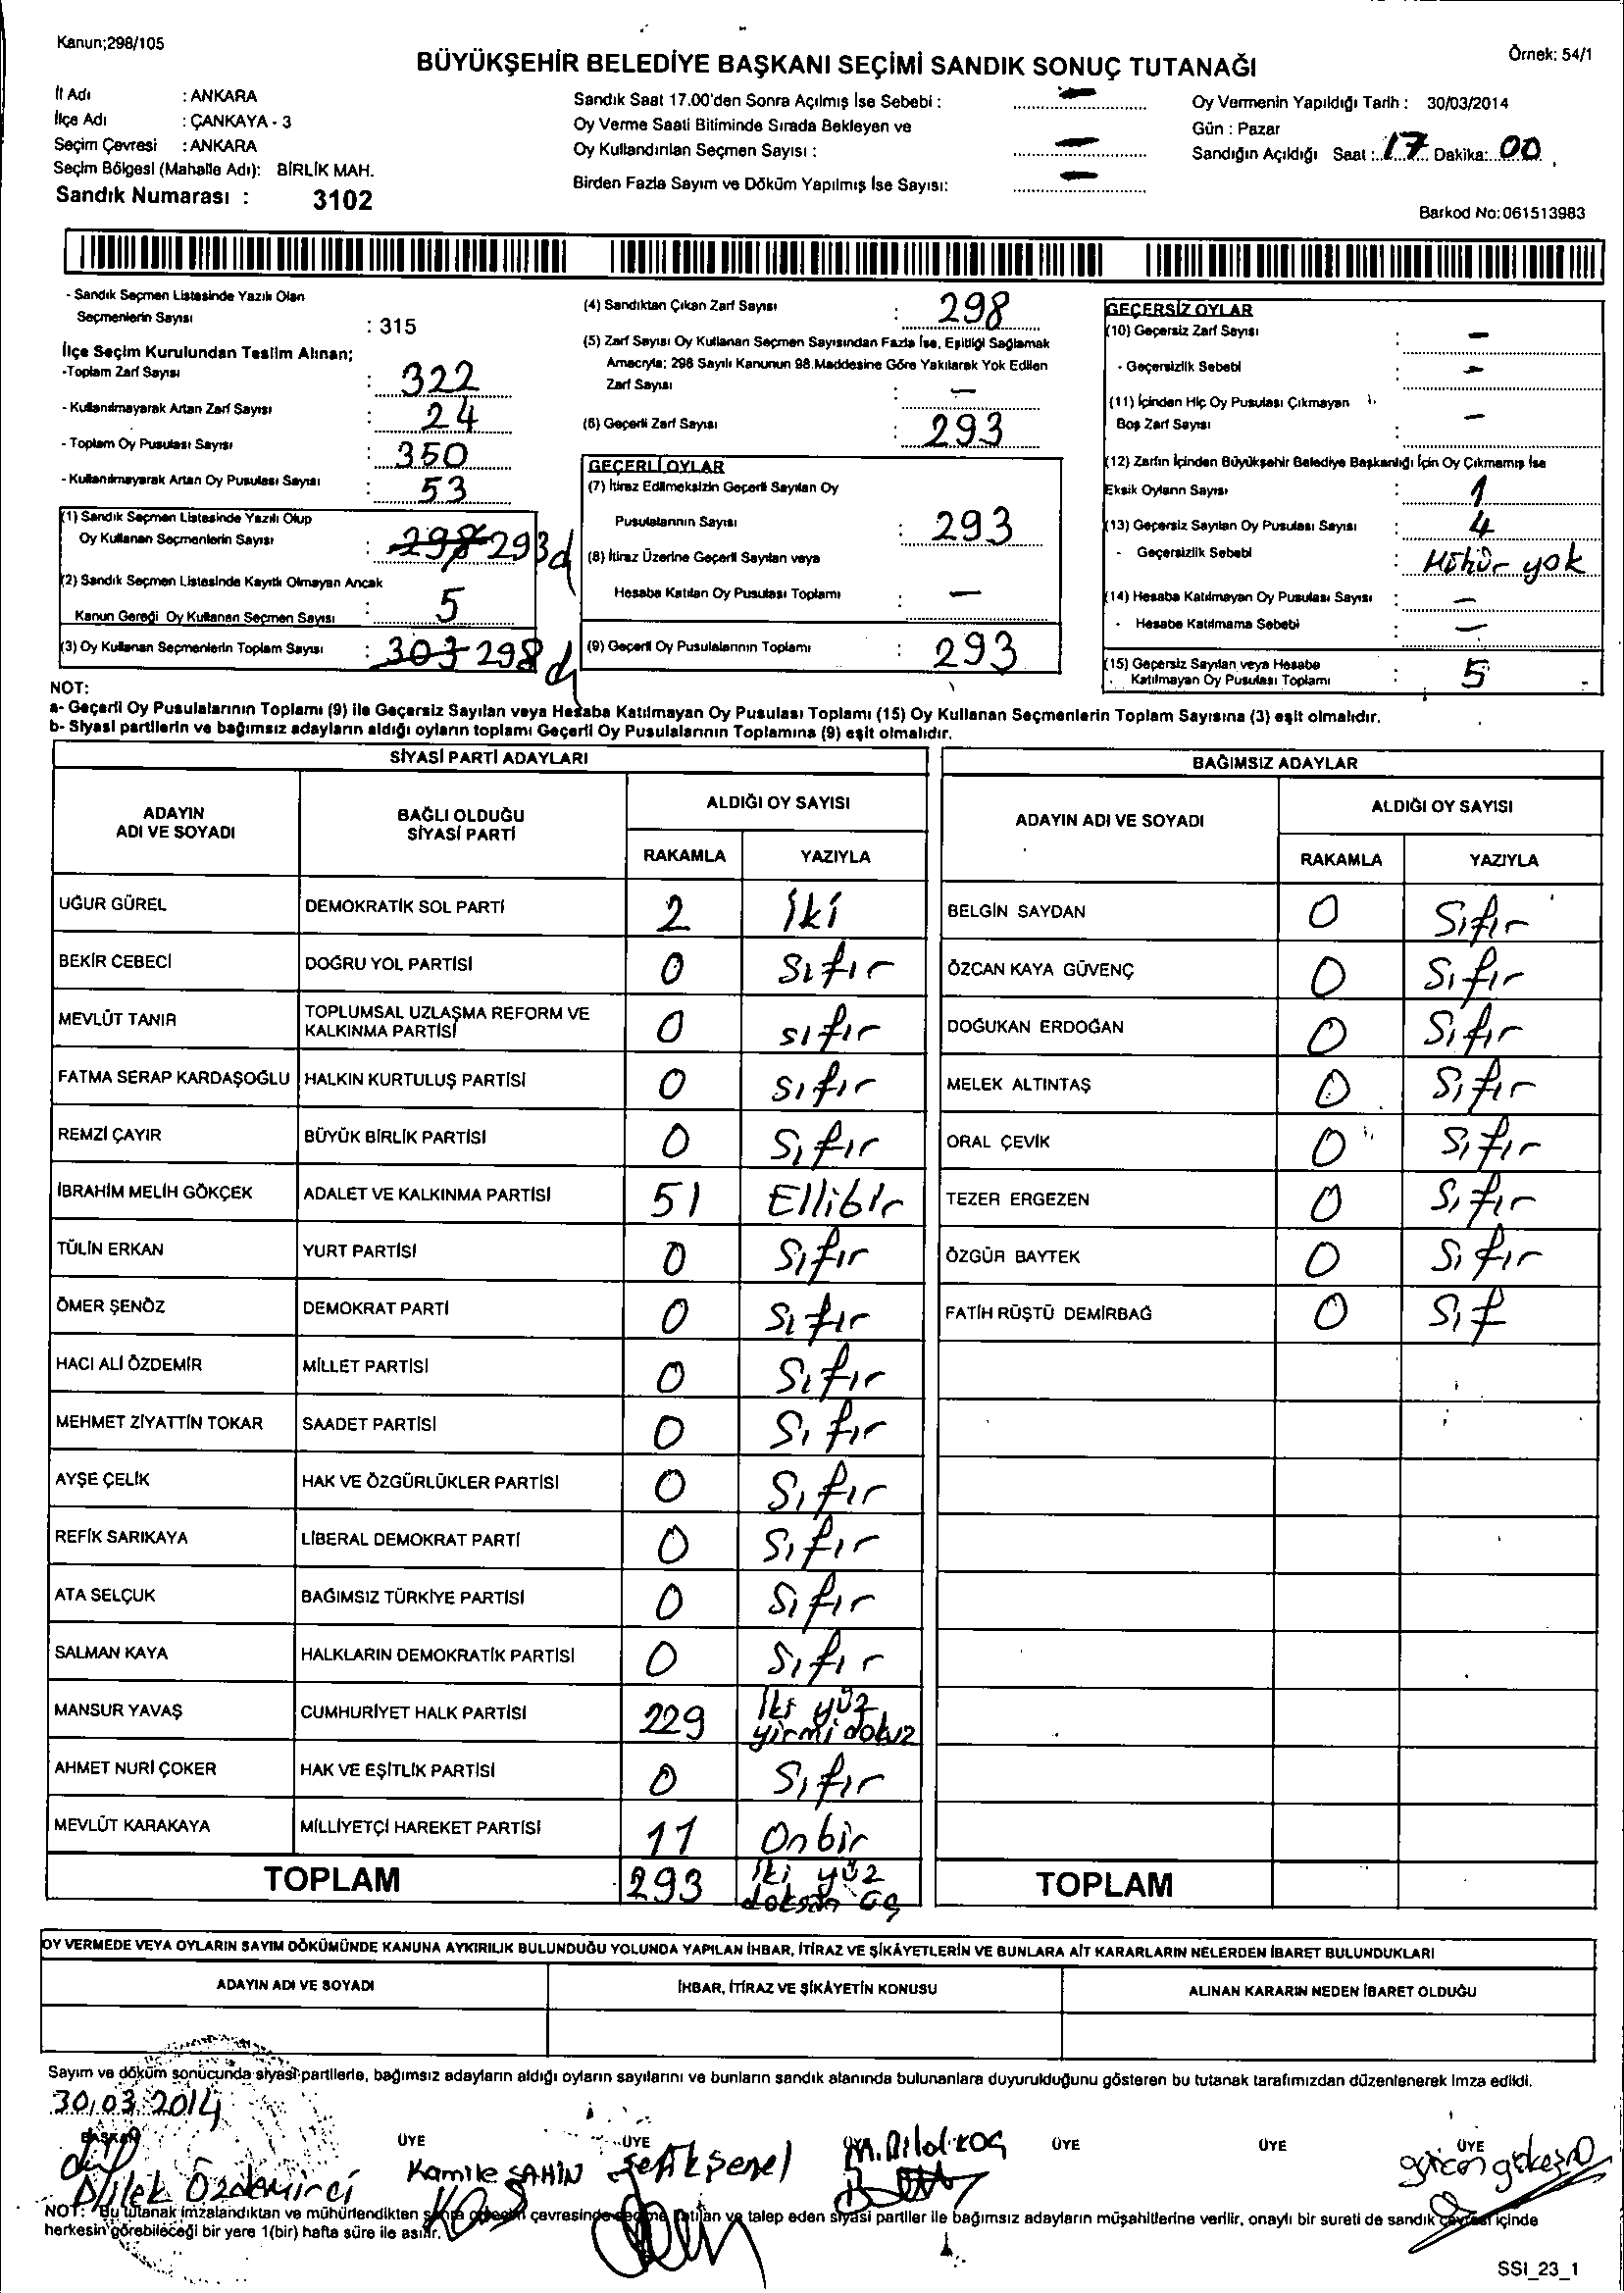 Kanun;298/105
Örnek: 54/1
BÜYÜKŞEHİR BELEDİYE BAŞKANI SEÇİMİ SANDIK SONUÇ TUTANAĞI
İl Adı : ANKARA
İlçe Adı : ÇANKAYA - 3
Seçim Çevresi : ANKARA
Seçim Bölgesi (Mahalle Adı): BİRLİK MAH.
Sandık Numarası : 3102
Sandık Saat 17.00'den Sonra Açılmış İse Sebebi : —
Oy Verme Saati Bitiminde Sırada Bekleyen ve
Oy Kullandırılan Seçmen Sayısı : —
Birden Fazla Sayım ve Döküm Yapılmış İse Sayısı: —
Oy Vermenin Yapıldığı Tarih : 30/03/2014
Gün : Pazar
Sandığın Açıldığı Saat : 17 Dakika: 00
Barkod No:061513983
- Sandık Seçmen Listesinde Yazılı Olan
Seçmenlerin Sayısı : 315
İlçe Seçim Kurulundan Teslim Alınan;
-Toplam Zarf Sayısı : 322
- Kullanılmayarak Artan Zarf Sayısı : 24
- Toplam Oy Pusulası Sayısı : 350
- Kullanılmayarak Artan Oy Pusulası Sayısı : 53
(1) Sandık Seçmen Listesinde Yazılı Olup
Oy Kullanan Seçmenlerin Sayısı : 298 293
(2) Sandık Seçmen Listesinde Kayıtlı Olmayan Ancak
Kanun Gereği Oy Kullanan Seçmen Sayısı : 5
(3) Oy Kullanan Seçmenlerin Toplam Sayısı : 303 298
(4) Sandıktan Çıkan Zarf Sayısı : 298
(5) Zarf Sayısı Oy Kullanan Seçmen Sayısından Fazla İse, Eşitliği Sağlamak
Amacıyla; 298 Sayılı Kanunun 98.Maddesine Göre Yakılarak Yok Edilen
Zarf Sayısı : —
(6) Geçerli Zarf Sayısı : 293
GEÇERLİ OYLAR
(7) İtiraz Edilmeksizin Geçerli Sayılan Oy
Pusulalarının Sayısı : 293
(8) İtiraz Üzerine Geçerli Sayılan veya
Hesaba Katılan Oy Pusulası Toplamı : —
(9) Geçerli Oy Pusulalarının Toplamı : 293
GEÇERSİZ OYLAR
(10) Geçersiz Zarf Sayısı : —
- Geçersizlik Sebebi : —
(11) İçinden Hiç Oy Pusulası Çıkmayan
Boş Zarf Sayısı : —
(12) Zarfın İçinden Büyükşehir Belediye Başkanlığı İçin Oy Çıkmamış İse
Eksik Oyların Sayısı : 1
(13) Geçersiz Sayılan Oy Pusulası Sayısı : 4
- Geçersizlik Sebebi : Mühür yok
(14) Hesaba Katılmayan Oy Pusulası Sayısı : —
- Hesaba Katılmama Sebebi : —
(15) Geçersiz Sayılan veya Hesaba
Katılmayan Oy Pusulası Toplamı : 5
NOT:
a- Geçerli Oy Pusulalarının Toplamı (9) ile Geçersiz Sayılan veya Hesaba Katılmayan Oy Pusulası Toplamı (15) Oy Kullanan Seçmenlerin Toplam Sayısına (3) eşit olmalıdır.
b- Siyasi partilerin ve bağımsız adayların aldığı oyların toplamı Geçerli Oy Pusulalarının Toplamına (9) eşit olmalıdır.
SİYASİ PARTİ ADAYLARI
ADAYIN ADI VE SOYADI BAĞLI OLDUĞU SİYASİ PARTİ ALDIĞI OY SAYISI
RAKAMLA YAZIYLA
UĞUR GÜREL DEMOKRATİK SOL PARTİ 2 İki
BEKİR CEBECİ DOĞRU YOL PARTİSİ 0 Sıfır
MEVLÜT TANIR TOPLUMSAL UZLAŞMA REFORM VE KALKINMA PARTİSİ 0 sıfır
FATMA SERAP KARDAŞOĞLU HALKIN KURTULUŞ PARTİSİ 0 sıfır
REMZİ ÇAYIR BÜYÜK BİRLİK PARTİSİ 0 Sıfır
İBRAHİM MELİH GÖKÇEK ADALET VE KALKINMA PARTİSİ 51 Ellibir
TÜLİN ERKAN YURT PARTİSİ 0 Sıfır
ÖMER ŞENÖZ DEMOKRAT PARTİ 0 Sıfır
HACI ALİ ÖZDEMİR MİLLET PARTİSİ 0 Sıfır
MEHMET ZİYATTİN TOKAR SAADET PARTİSİ 0 Sıfır
AYŞE ÇELİK HAK VE ÖZGÜRLÜKLER PARTİSİ 0 Sıfır
REFİK SARIKAYA LİBERAL DEMOKRAT PARTİ 0 Sıfır
ATA SELÇUK BAĞIMSIZ TÜRKİYE PARTİSİ 0 Sıfır
SALMAN KAYA HALKLARIN DEMOKRATİK PARTİSİ 0 Sıfır
MANSUR YAVAŞ CUMHURİYET HALK PARTİSİ 229 İki yüz yirmi dokuz
AHMET NURİ ÇOKER HAK VE EŞİTLİK PARTİSİ 0 Sıfır
MEVLÜT KARAKAYA MİLLİYETÇİ HAREKET PARTİSİ 11 Onbir
TOPLAM 293 İki yüz doksan üç
BAĞIMSIZ ADAYLAR
ADAYIN ADI VE SOYADI ALDIĞI OY SAYISI
RAKAMLA YAZIYLA
BELGİN SAYDAN 0 Sıfır
ÖZCAN KAYA GÜVENÇ 0 Sıfır
DOĞUKAN ERDOĞAN 0 Sıfır
MELEK ALTINTAŞ 0 Sıfır
ORAL ÇEVİK 0 Sıfır
TEZER ERGEZEN 0 Sıfır
ÖZGÜR BAYTEK 0 Sıfır
FATİH RÜŞTÜ DEMİRBAĞ 0 Sıf
TOPLAM
OY VERMEDE VEYA OYLARIN SAYIM DÖKÜMÜNDE KANUNA AYKIRILIK BULUNDUĞU YOLUNDA YAPILAN İHBAR, İTİRAZ VE ŞİKÂYETLERİN VE BUNLARA AİT KARARLARIN NELERDEN İBARET BULUNDUKLARI
ADAYIN ADI VE SOYADI İHBAR, İTİRAZ VE ŞİKÂYETİN KONUSU ALINAN KARARIN NEDEN İBARET OLDUĞU
Sayım ve döküm sonucunda siyasi partilerle, bağımsız adayların aldığı oyların sayılarını ve bunların sandık alanında bulunanlara duyurulduğunu gösteren bu tutanak tarafımızdan düzenlenerek imza edildi.
30.03.2014
BAŞKAN ÜYE ÜYE ÜYE ÜYE ÜYE
Dilek Özdemirci Kamile ŞAHİN Şenel M. Bilal KOÇ
NOT: Bu tutanak imzalandıktan ve mühürlendikten çevresinde ve talep eden siyasi partiler ile bağımsız adayların müşahitlerine verilir, onaylı bir sureti de sandık çevresi içinde
herkesin görebileceği bir yere 1(bir) hafta süre ile asılır.
SSI_23_1